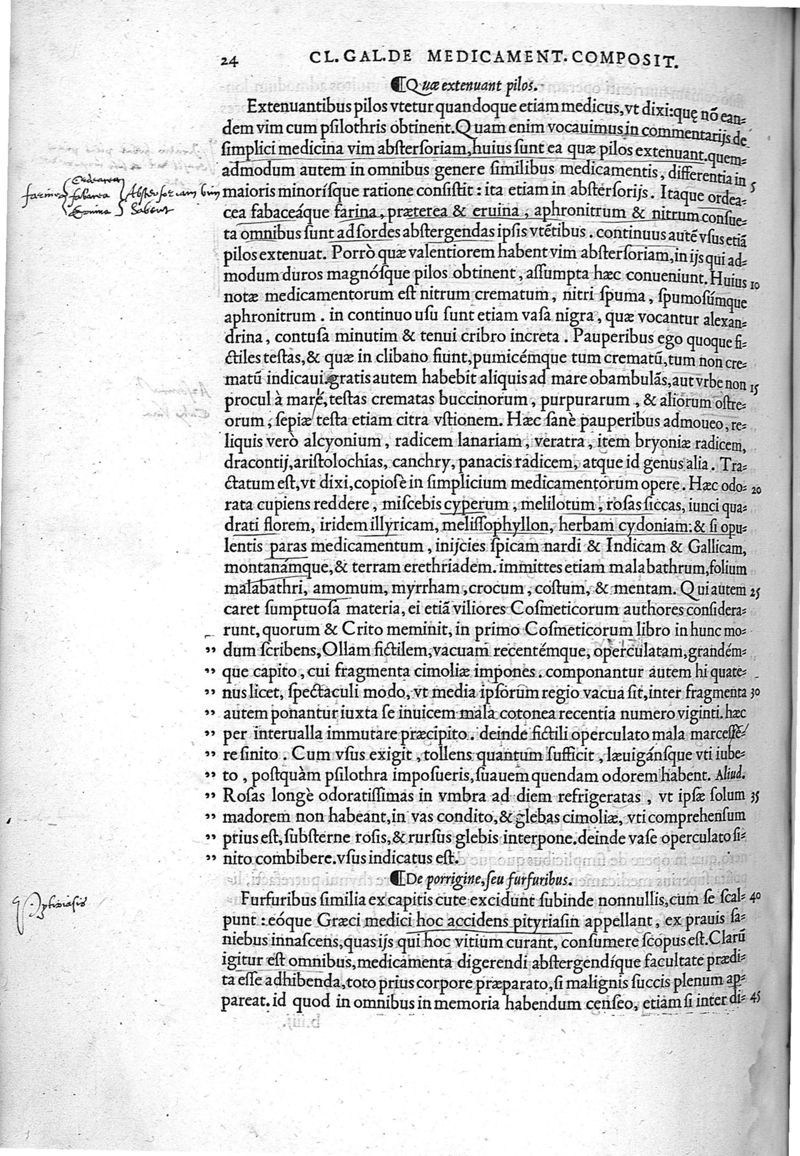 24 CL. GAL. DE MEDICAMENT. COMPOSIT.
¶Quæ extenuant pilos.
Extenuantibus pilos vtetur quandoque etiam medicus, vt dixi: quę nõ ean=
dem vim cum psilothris obtinent. Quam enim vocauimus in commentarijs de
simplici medicina vim abstersoriam, huius sunt ea quæ pilos extenuant. quem=
admodum autem in omnibus genere similibus medicamentis, differentia in
maioris minorísque ratione consistit: ita etiam in abstersorijs. Itaque ordea= 5
cea fabaceáque farina, præterea & eruina, aphronitrum & nitrum consue=
ta omnibus sunt ad sordes abstergendas ipsis vtẽtibus. continuus autẽ vsus etiã
pilos extenuat. Porrò quæ valentiorem habent vim abstersoriam, in ijs qui ad=
modum duros magnósque pilos obtinent, assumpta hæc conueniunt. Huius
notæ medicamentorum est nitrum crematum, nitri spuma, spumosúmque 10
aphronitrum. in continuo vsu sunt etiam vasa nigra, quæ vocantur alexan=
drina, contusa minutim & tenui cribro increta. Pauperibus ego quoque fi=
ctiles testas, & quæ in clibano fiunt, pumicémque tum crematũ, tum non cre=
matũ indicaui. gratis autem habebit aliquis ad mare obambulãs, aut vrbe non 15
procul à mare, testas crematas buccinorum, purpurarum, & aliorum ostre=
orum, sepiæ testa etiam citra vstionem. Hæc sanè pauperibus admoueo, re=
liquis verò alcyonium, radicem lanariam, veratra, item bryoniæ radicem,
dracontij, aristolochias, canchry, panacis radicem, atque id genus alia. Tra=
ctatum est, vt dixi, copiose in simplicium medicamentorum opere. Hæc odo= 20
rata cupiens reddere, miscebis cyperum, melilotum, rosas siccas, iunci qua=
drati florem, iridem illyricam, melissophyllon, herbam cydoniam: & si opu=
lentis paras medicamentum, inijcies spicam nardi & Indicam & Gallicam,
montanámque, & terram erethriadem. immittes etiam malabathrum, folium
malabathri, amomum, myrrham, crocum, costum, & mentam. Qui autem 25
caret sumptuosa materia, ei etiã viliores Cosmeticorum authores considera=
runt, quorum & Crito meminit, in primo Cosmeticorum libro in hunc mo=
” dum scribens, Ollam fictilem, vacuam recentémque, operculatam, grandém=
” que capito, cui fragmenta cimoliæ impones. componantur autem hi quate=
” nus licet, spectaculi modo, vt media ipsorum regio vacua sit, inter fragmenta 30
” autem ponantur iuxta se inuicem mala cotonea recentia numero viginti. hæc
” per interualla immutare præcipito. deinde fictili operculato mala marcesse=
” re sinito. Cum vsus exigit, tollens quantum sufficit, læuigánsque vti iube=
” to, postquàm psilothra imposueris, suauem quendam odorem habent. Aliud.
” Rosas longè odoratissimas in vmbra ad diem refrigeratas, vt ipsæ solum 35
” madorem non habeant, in vas condito, & glebas cimoliæ, vti comprehensum
” prius est, substerne rosis, & rursus glebis interpone. deinde vase operculato si=
” nito combibere. vsus indicatus est.
¶De porrigine, seu furfuribus.
Furfuribus similia ex capitis cute excidunt subinde nonnullis, cum se scal= 40
punt: eóque Græci medici hoc accidens pityriasin appellant, ex prauis sa=
niebus innascens, quas ijs qui hoc vitium curant, consumere scopus est. Clarũ
igitur est omnibus, medicamenta digerendi abstergendíque facultate prædi=
ta esse adhibenda, toto prius corpore præparato, si malignis succis plenum ap=
pareat. id quod in omnibus in memoria habendum censeo, etiam si inter di= 45
farinæ
ordearea
fabacea
Abstersoriam vim
habent